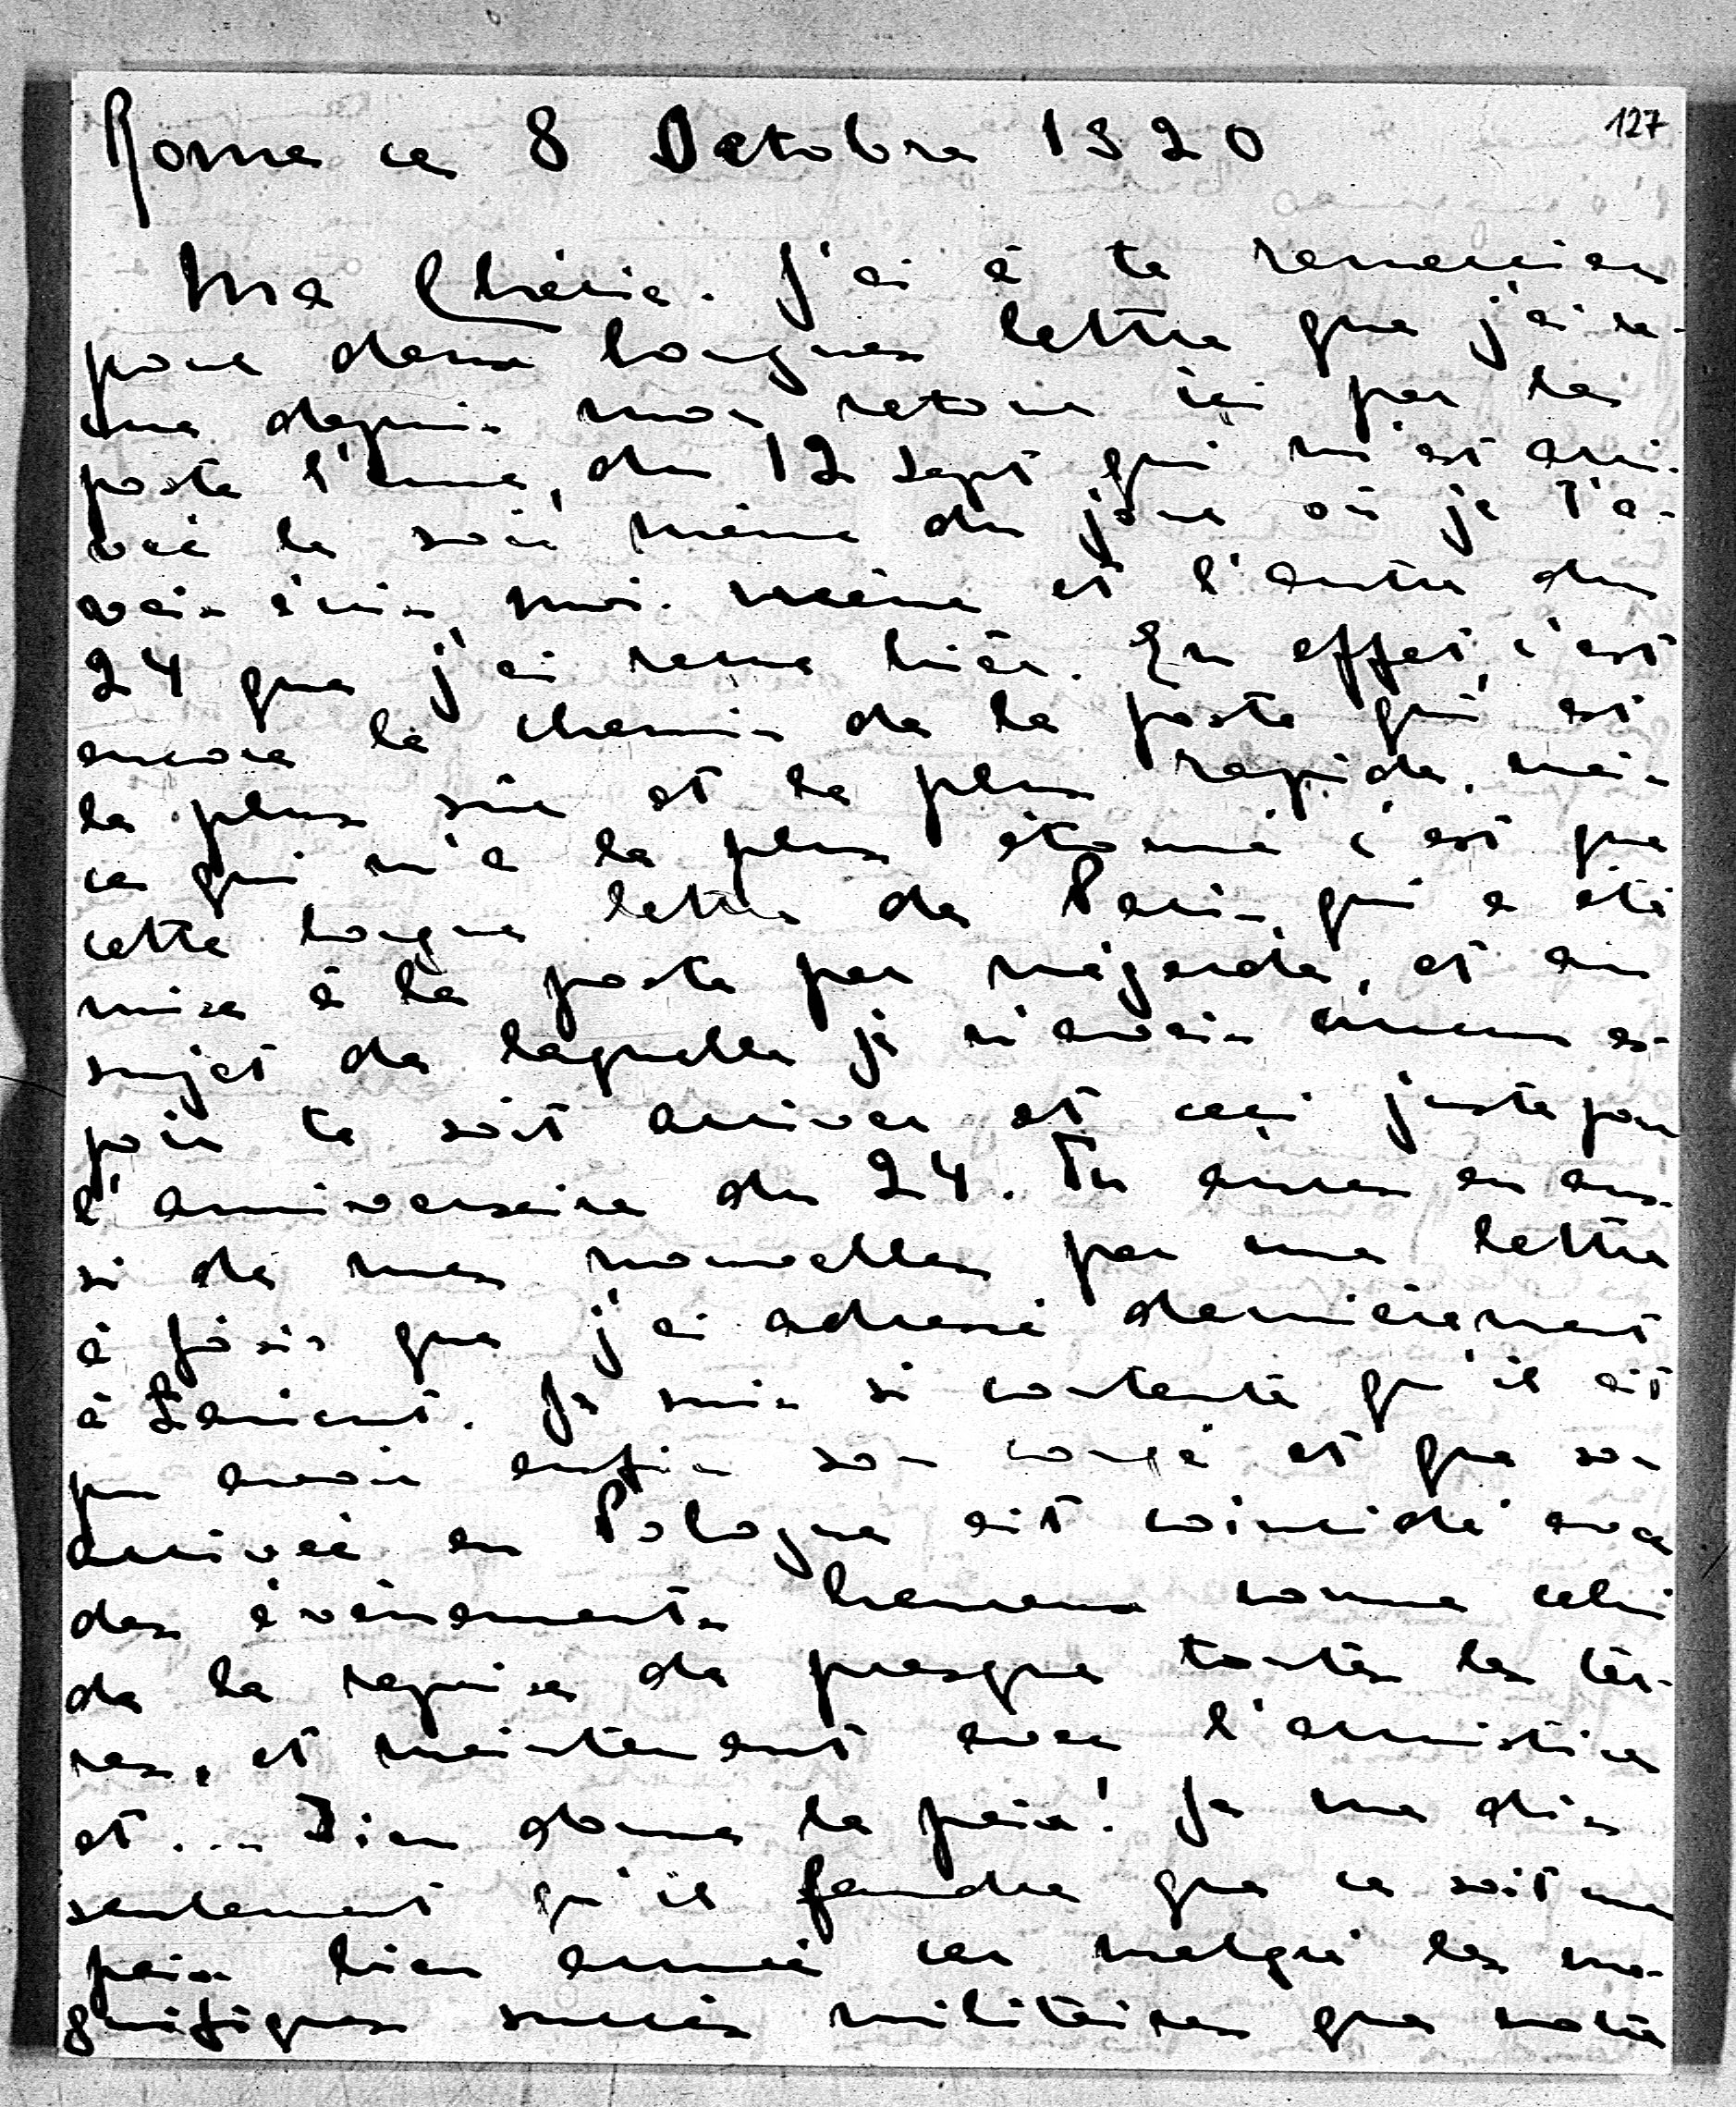 127
Rome ce 8 Octobre 1920
Ma Chérie. J'ai à te remercier
pour deux longues lettres que j'ai re-
çues depuis mon retour ici par la
poste l'une, du 12 sept qui m'est arri-
vée le soir même du jour où je t'a-
vais écris moi-même et l'autre du
24 que j'ai reçue hier. En effet, c'est
encore le chemin de la poste qui est
le plus sûr et le plus rapide, mais
ce qui m'a le plus étonné c'est que
cette longue lettre de Paris, qui a été
mise à la poste par mégarde, et au
sujet de laquelle je n'avais aucun es-
poir te soit arrivée et ceci juste pour
l'anniversaire du 24. Tu auras eu aus-
si de mes nouvelles par une lettre
à Józio que j'ai adressé dernièrement
à Łańcut. Je suis si contente qu'il ait
pu avoir enfin son congé et que son
arrivée en Pologne ait coincidé avec
des évènements heureux comme celui
de la reprise de presque toutes les ter-
res, et maintenant avec l'armistice
et... Dieu donne la paix! Je me dis
seulement qu'il faudra que ce soit une
paix bien armée car malgré les ma-
gnifiques succès militaires que notre